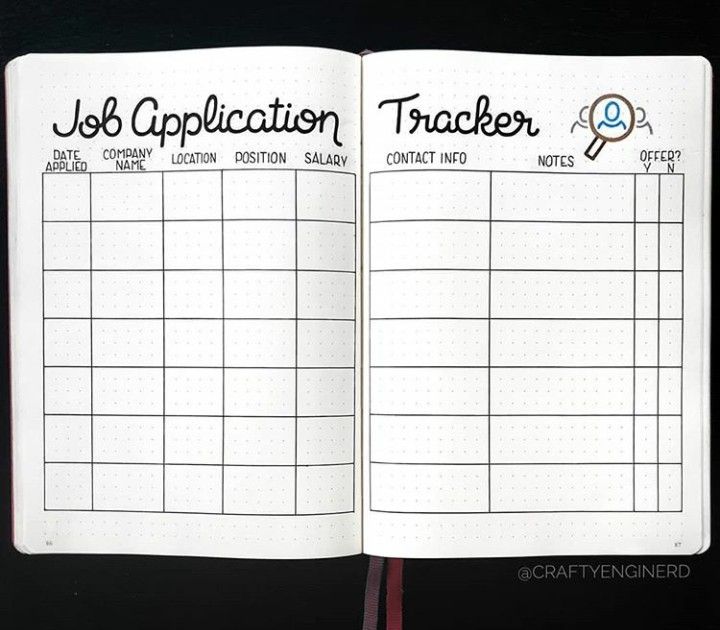 Job Application Tracker
DATE APPLIED
COMPANY NAME
LOCATION
POSITION
SALARY
CONTACT INFO
NOTES
OFFER?
Y N
86
87
@CRAFTYENGINERD